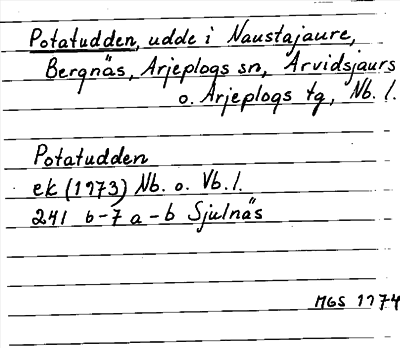 Potatudden, udde i Naustajaure,
Bergnäs, Arjeplogs sn, Arvidsjaurs
o. Arjeplogs tg, Nb. l.
Potatudden
ek (1973) Nb. o. Vb. l.
241 b-7 a-b Sjulnäs
MGS 1974